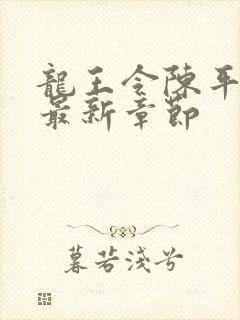 龍王令陳平
最新章節
暮若淺兮